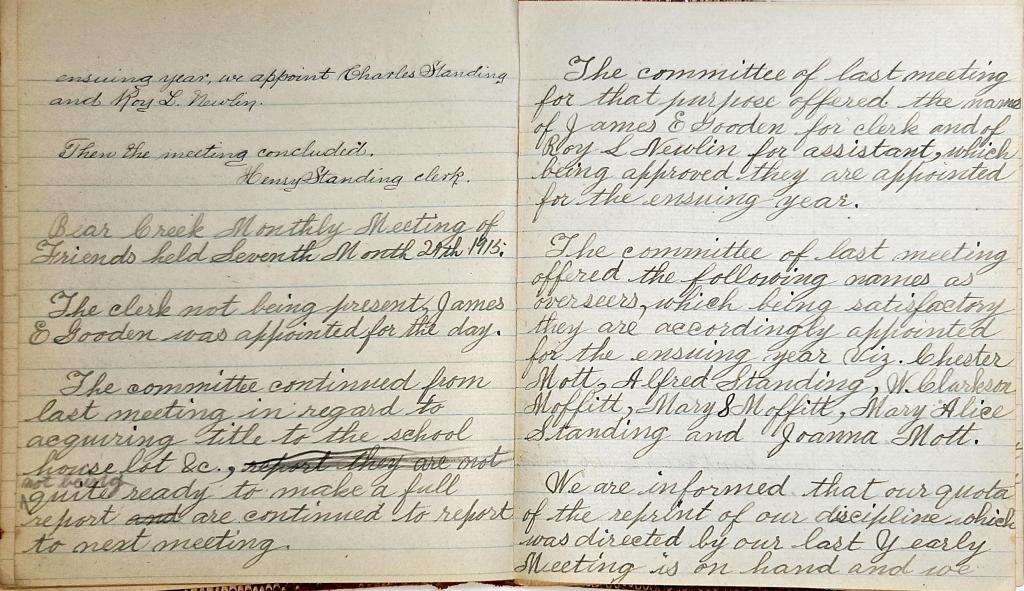 ensuing year, we appoint Charles Standing
and Roy L. Newlin.
Then the meeting concluded.
Henry Standing clerk.
Bear Creek Monthly Meeting of
Friends held Seventh Month 29th 1915.
The clerk not being present, James
E Gooden was appointed for the day.
The committee continued from
last meeting in regard to
acquiring title to the school
house lot &c., report they are not
not being
quite ready to make a full
report and are continued to report
to next meeting.
The committee of last meeting
for that purpose offered the names
of James E Gooden for clerk and of
Roy L Newlin for assistant, which
being approved they are appointed
for the ensuing year.
The committee of last meeting
offered the following names as
overseers, which being satisfactory
they are accordingly appointed
for the ensuing year Viz. Chester
Mott, Alfred Standing, W. Clarkson
Moffitt, Mary S Moffitt, Mary Alice
Standing and Joanna Mott.
We are informed that our quota
of the reprint of our discipline which
was directed by our last Yearly
Meeting is on hand and we